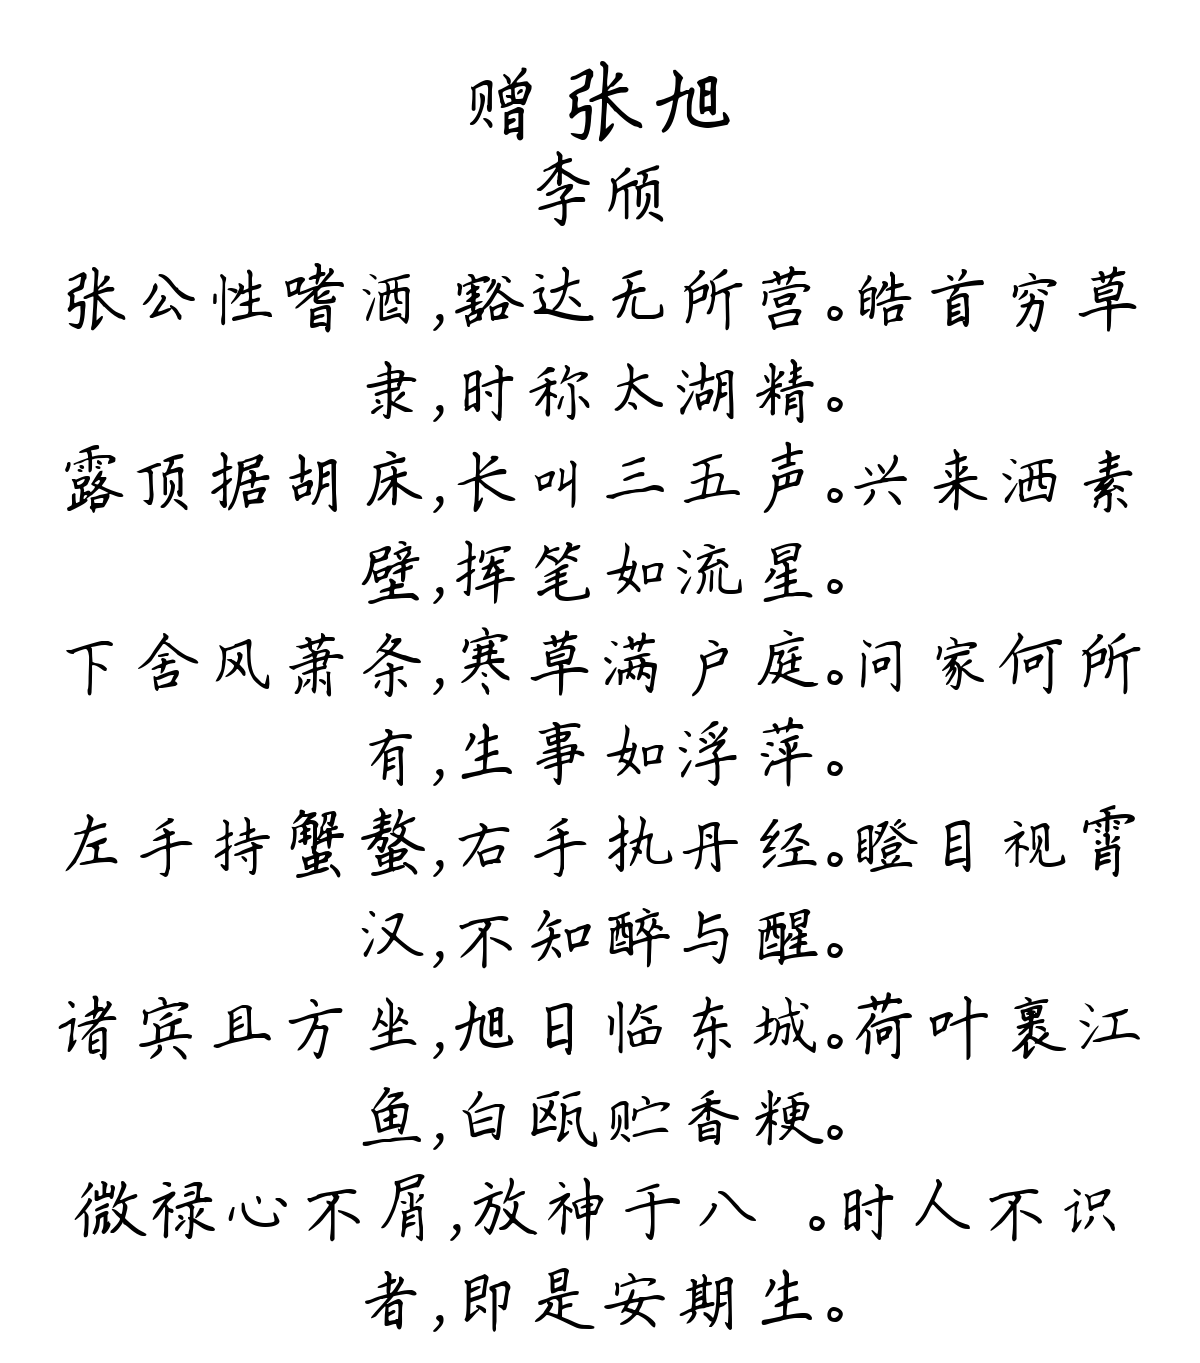 赠张旭
李颀
张公性嗜酒,豁达无所营。皓首穷草
隶,时称太湖精。
露顶据胡床,长叫三五声。兴来洒素
壁,挥笔如流星。
下舍风萧条,寒草满户庭。问家何所
有,生事如浮萍。
左手持蟹螯,右手执丹经。瞪目视霄
汉,不知醉与醒。
诸宾且方坐,旭日临东城。荷叶裹江
鱼,白瓯贮香粳。
微禄心不屑,放神于八 。时人不识
者,即是安期生。